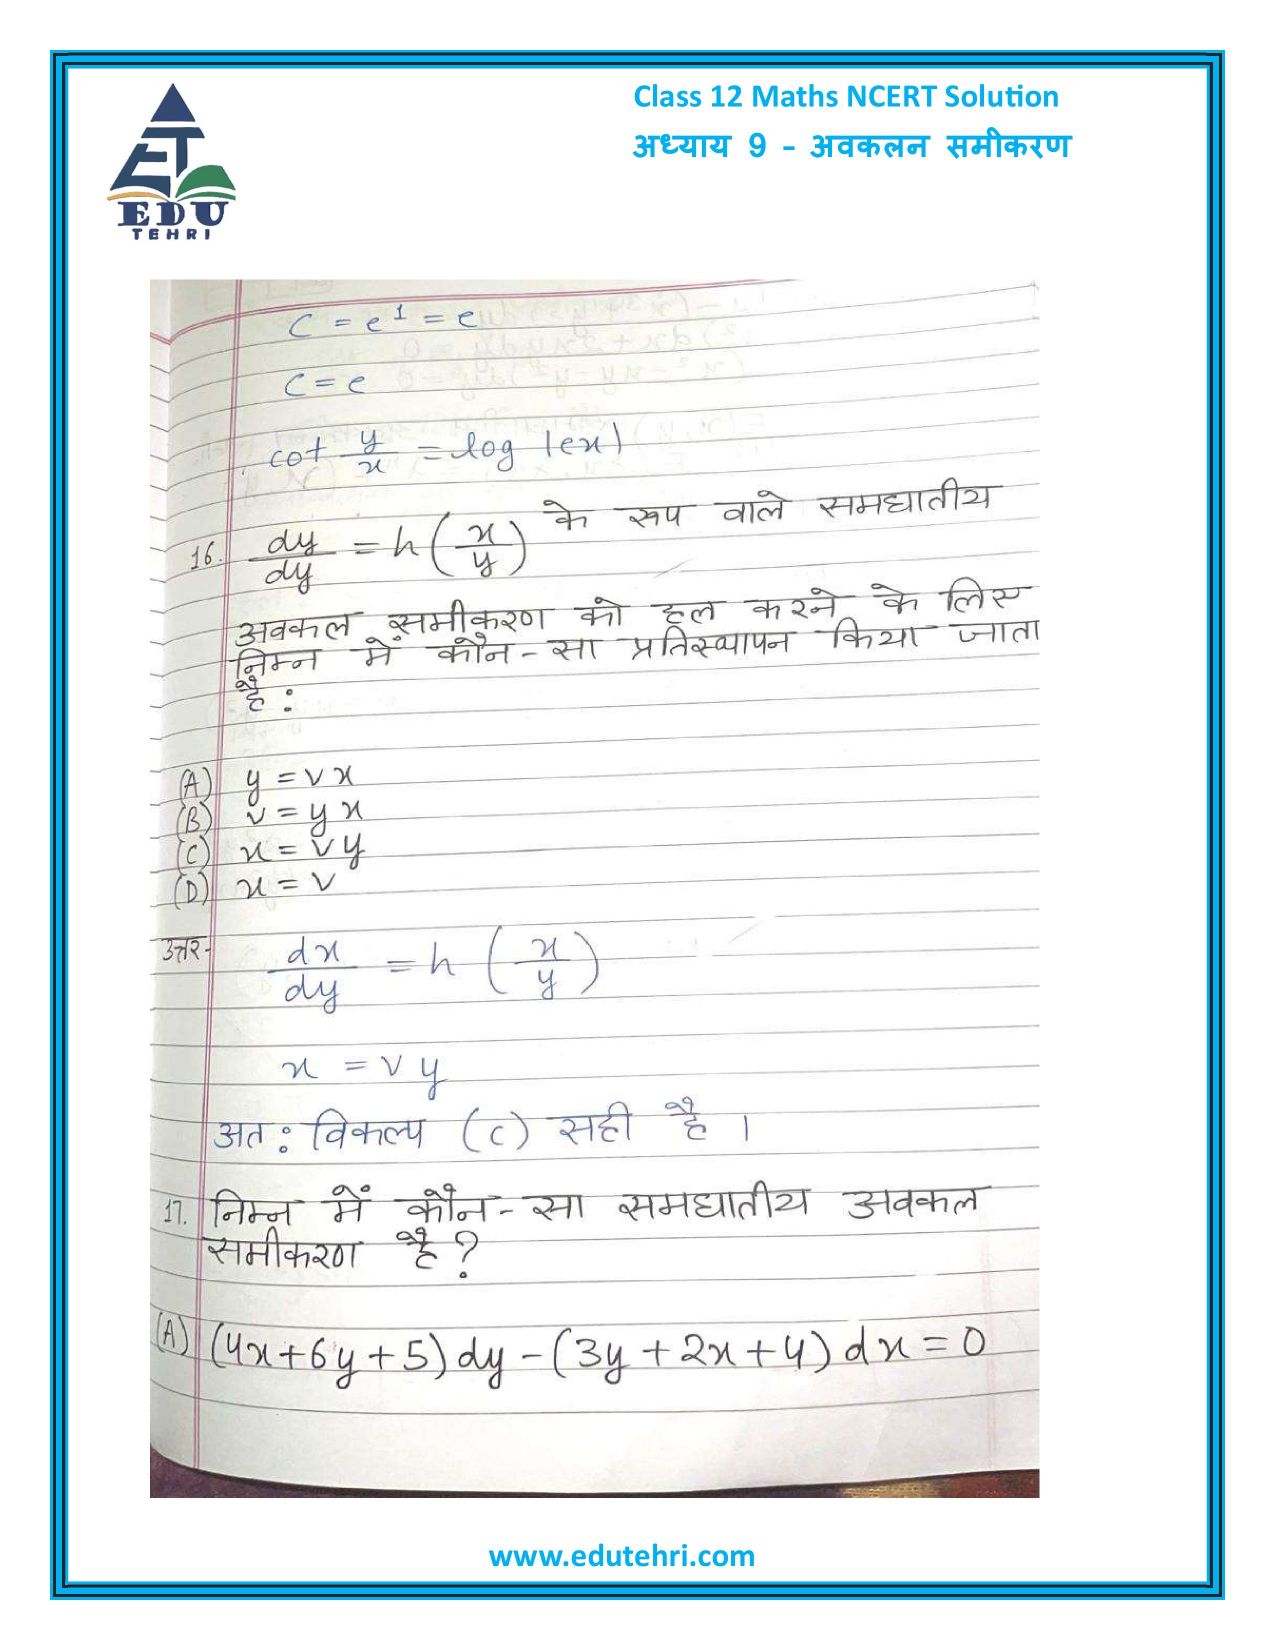 Class 12 Maths NCERT Solution
अध्याय 9 - अवकलन समीकरण
EDU
TEHRI
C = e¹ = e
C = e
cot y/x = log |ex|
16. dy/dy = h(x/y) के रूप वाले समघातीय
अवकल समीकरण को हल करने के लिए
निम्न में कौन-सा प्रतिस्थापन किया जाता
है :
(A) y = vx
(B) v = yx
(C) x = vy
(D) x = v
उत्तर- dx/dy = h (x/y)
x = vy
अत: विकल्प (C) सही है ।
17. निम्न में कौन-सा समघातीय अवकल
समीकरण है ?
(A) (4x+6y+5)dy-(3y+2x+4)dx=0
www.edutehri.com